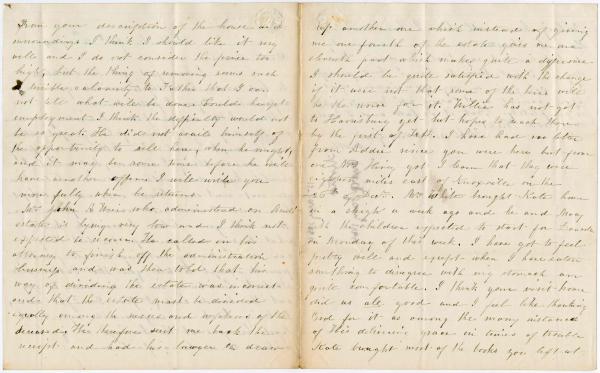 From your description of the house and
surroundings I think I should like it very
well and I do not consider the price too
high, but the thing of removing seems such
a terrible calamity to Father that I can
not tell what will be done. Could he get
employment I think the difficulty would not
be so great. He did not avail himself of
the opportunity to sell here, when he might,
and it may be some time before he will
have another offer. I will write you
more fully when he returns.
Mr John A who administered on
estate is lying very low and I think not
expected to recover. He called on his
attorney to finish off the administration
business and was then told that his
way of dividing the estate was incorrect
and that the estate must be divided
equally among the nieces and nephews of the
deceased. He therefore sent me back the
receipt and had his lawyer to draw
up another one which instead of giving
me one fourth of the estate gives me one
eleventh part which makes quite a difference
I should be quite satisfied with the change
if it were not that some of the heirs will
be the worse for it. Willie has not got
to Harrisburg yet but hopes to reach there
by the first of Feb. I have had no letter
from Addie since you were here but from
one Mr got I learn that they were
eighteen miles east of Knoxville on the
of Dec. Mr White brought Kate home
in a sleigh a week ago and he and May
with the children expected to start for
on Monday of this week. I have got to feel
pretty well and except when I have eaten
something to disagree with my stomach am
quite comfortable. I think your visit home
did us all good and I feel like thanking
God for it as among the many instances
of His delivering grace in times of trouble
Kate brought most of the books you left at